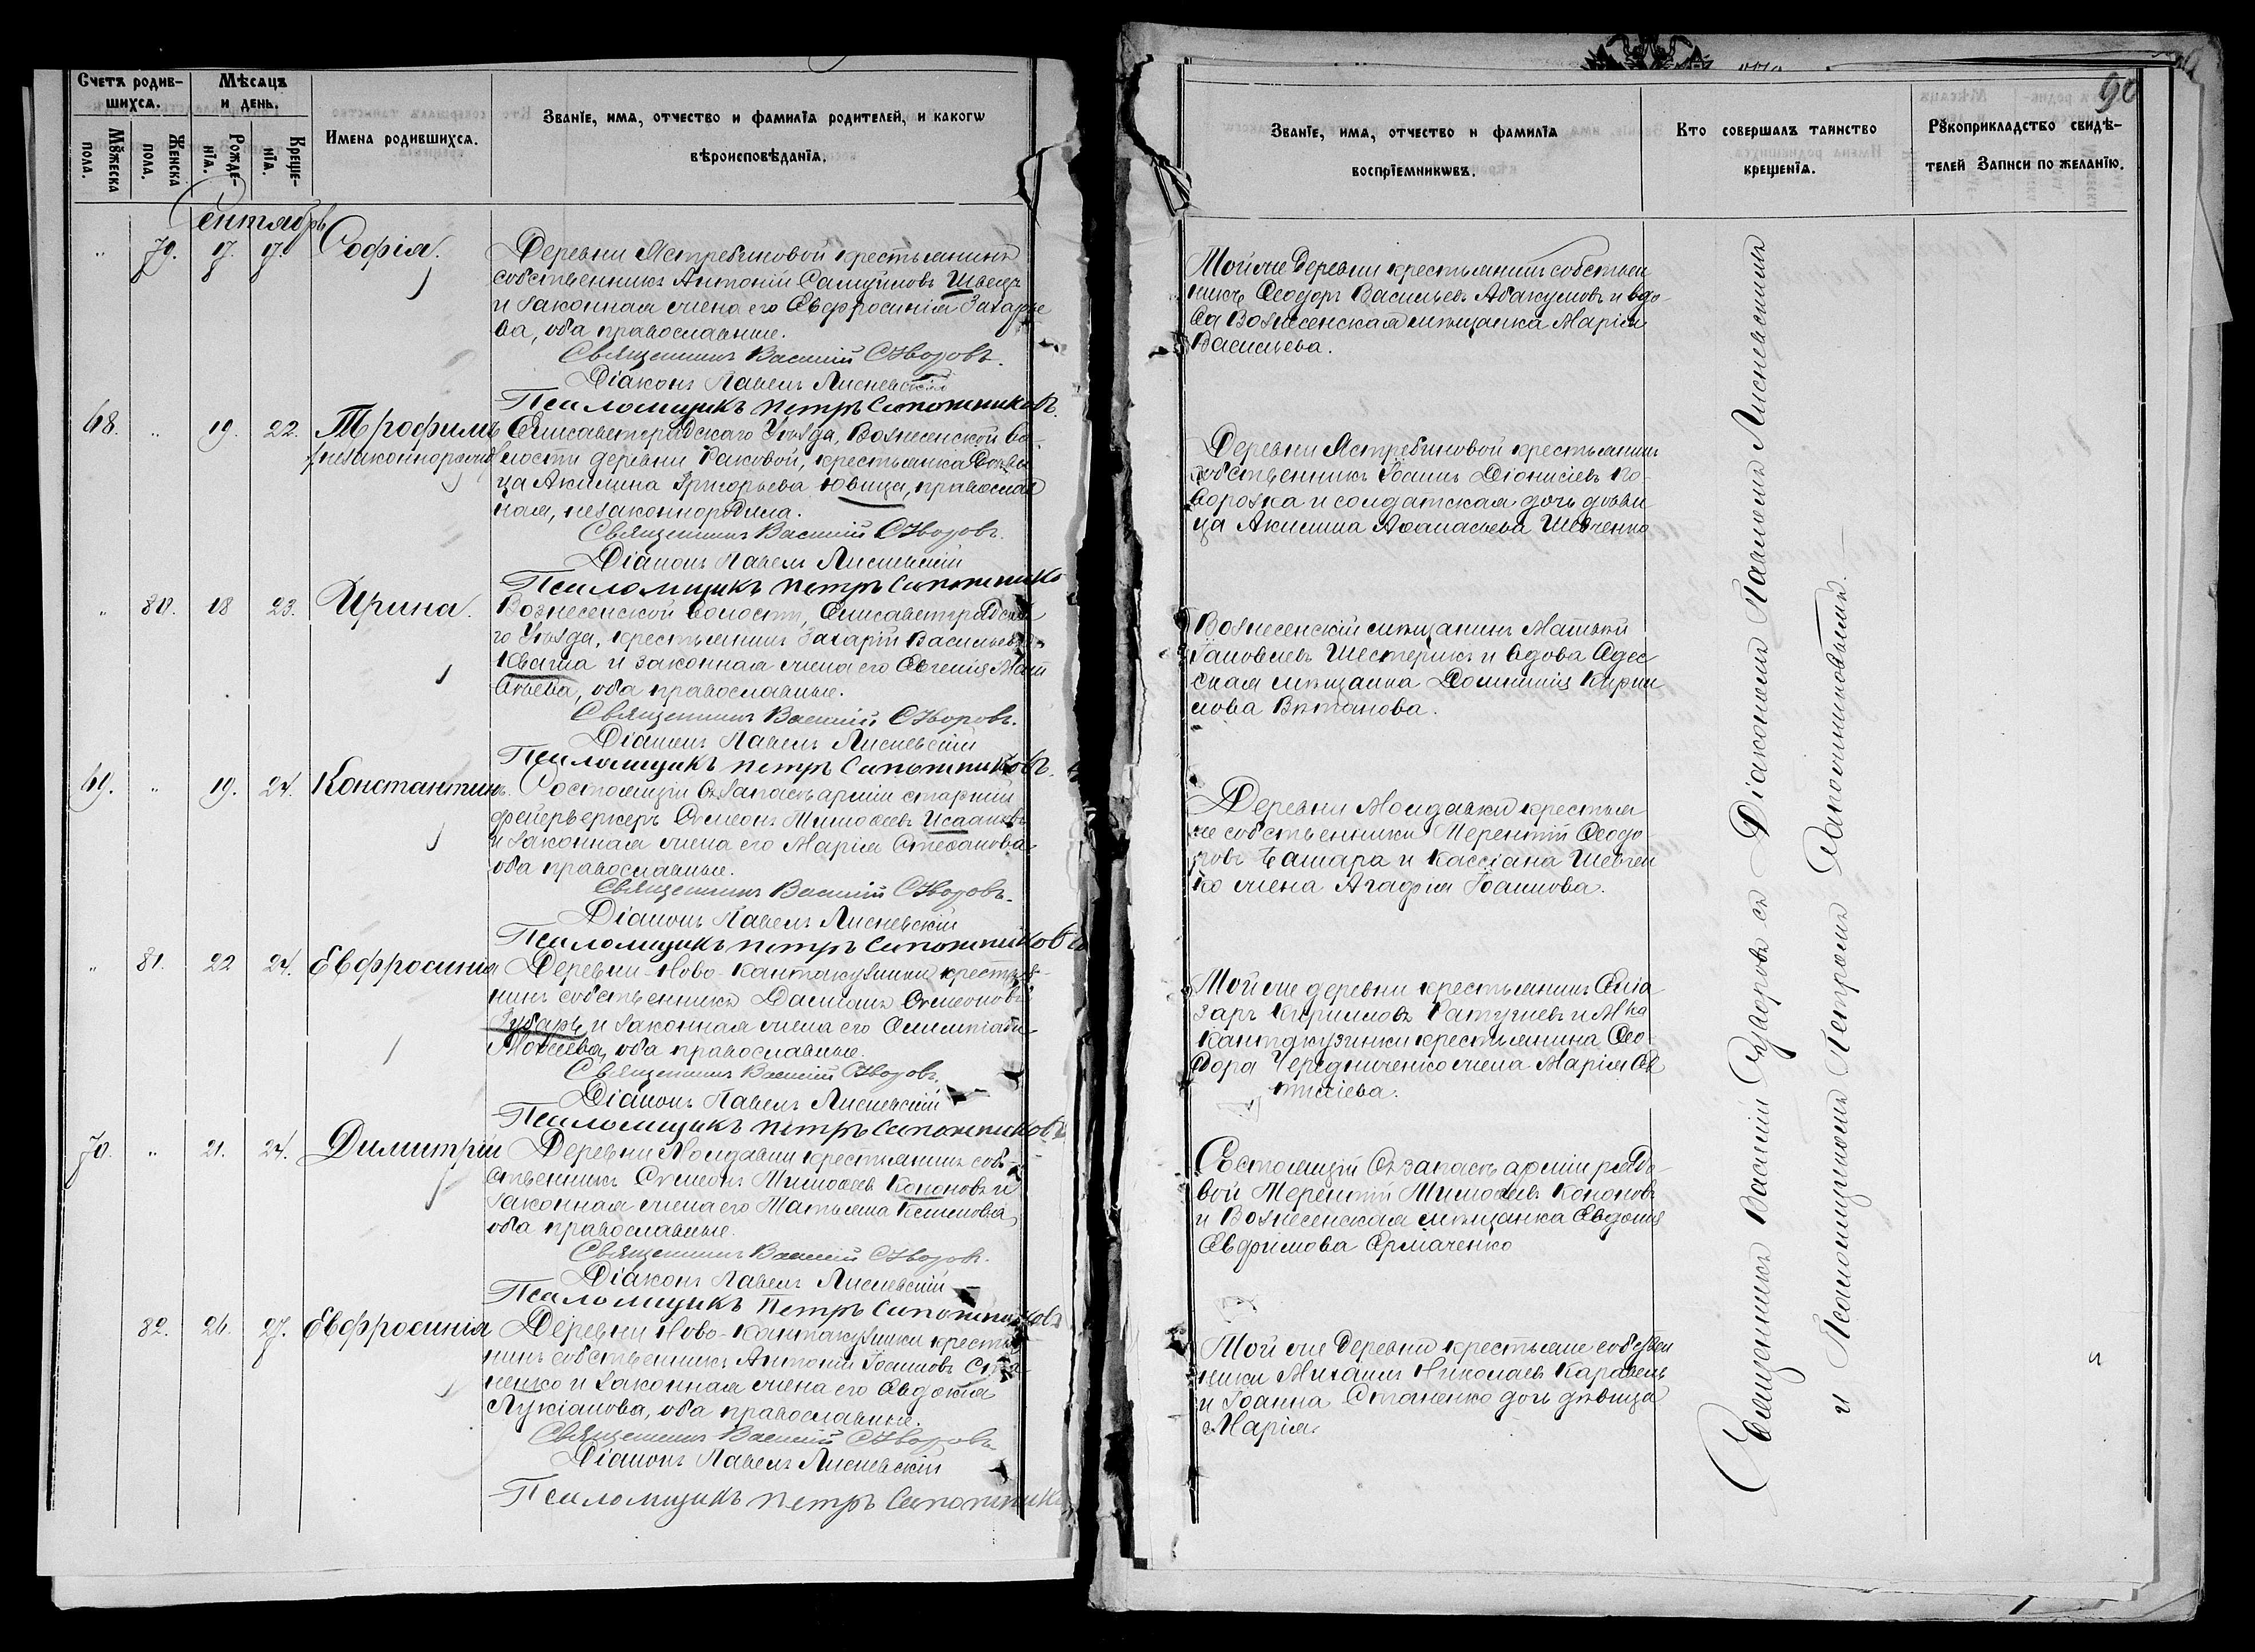 Счетъ родив-
шихсѧ.
Мѣсѧцъ
и день.
Мꙋжеска
пола.
Женска
пола.
Рожде-
нїѧ.
Креще-
нїѧ.
Имена родившихсѧ.
Званїе, имѧ, отчество и фамилїѧ родителей, и какогѡ
вѣроисповѣданїѧ.
Сентябрь
" 79. 17. 17. Софія.
Деревни Ястребиновой крестьянинъ
собственникъ Антоній Самуиловъ Швецъ
и законная жена его Евфросинія Захарье
ва, оба православные.
Священникъ Василій
Діаконъ Павелъ Лисневскій
Псаломщикъ Петръ Сапожниковъ.
68. " 19. 22. Трофимъ
незаконнорожд
Елисаветградскаго Уѣзда, Вознесенской во-
лости деревни Раковой, крестьянка дѣви
ца Акилина Григорьева Ювица, православ
ная, незаконнородила.
Священникъ Василій
Діаконъ Павелъ Лисневскій
Псаломщикъ Петръ Сапожнико
" 80. 18 23. Ирина.
Вознесенской волости, Елисаветградска
го Уѣзда, крестьянинъ Захарій Васильевъ
Кваша и законная жена его Евгенія Мат
ѳѣева, оба православные.
Священникъ Василій
Діаконъ Павелъ Лисневскій
Псаломщикъ Петръ Сапожниковъ.
69. " 19. 24. Константинъ.
Состоящій въ запасѣ арміи старшій
фейерверкеръ Симеонъ Тимоѳеевъ Исааковъ
и законная жена его Марія Стефанова
оба православные.
Священникъ Василій
Діаконъ Павелъ Лисневскій
Псаломщикъ Петръ Сапожниковъ
" 81. 22 24. Евфросинія
Деревни Ново-Кантакузинки крестья-
нинъ собственникъ Даміанъ Симеоновъ
Губарь и законная жена его Олимпіада
Моисеева, оба православные.
Священникъ Василій
Діаконъ Павелъ Лисневскій
Псаломщикъ Петръ Сапожниковъ
70. " 21. 24. Димитрій
Деревни Молдавки крестьянинъ соб-
ственникъ Симеонъ Тимоѳеевъ Кононовъ и
законная жена его Татьяна
оба православные.
Священникъ Василій
Діаконъ Павелъ Лисневскій
Псаломщикъ Петръ Сапожниковъ
82. 26. 27. Евфросинія
Деревни Ново-Кантакузинки крестья
нинъ собственникъ Антоній Іоанновъ Ста
ненко и законная жена его Евдокія
Лукіанова, оба православные.
Священникъ Василій
Діаконъ Павелъ Лисневскій
Псаломщикъ Петръ Сапожнико
90
Званїе, имѧ, отчество и фамилїѧ
воспрїемникѡвъ.
Кто совершалъ таинство
крещенїѧ.
Рꙋкоприкладство свидѣ-
телей Записи по желанїю.
Той же деревни крестьянинъ собствен
никъ Ѳеодоръ Васильевъ Абакумовъ и вдо-
ва Вознесенская мѣщанка Марія
Васильева.
Деревни Ястребиновой крестьянинъ
собственникъ Іоаннъ Діонисіевъ По-
ворозка и солдатская дочь дѣви
ца Акилина Аѳанасьева Шевченко
Вознесенскій мѣщанинъ Матвѣй
Іаковлевъ Шестерикъ и вдова Одес
ская мѣщанка Домникія Кирил
лова
Деревни Молдавки крестья
не собственники Терентій Ѳеодо-
ровъ Башара и Кассіана Шевчен
ко жена Агафія Іоаннова.
Той же деревни крестьянинъ Елеа
заръ Кирилловъ и
Кантакузинки крестьянина Ѳео-
дора Чередниченко жена Марія Ев
тихіева.
Состоящій въ запасѣ арміи рядо-
вой Терентій Тимоѳеевъ Кононовъ
и Вознесенская мѣщанка Евдокія
Евфимова Ермаченко
Той же деревни крестьяне собствен
ники Михаилъ Николаевъ Каравель
и Іоанна Станенко дочь дѣвица
Марія.
Священникъ Василій съ Діакономъ Павломъ Лисневскимъ
и Псаломщикомъ Петромъ Сапожниковымъ.